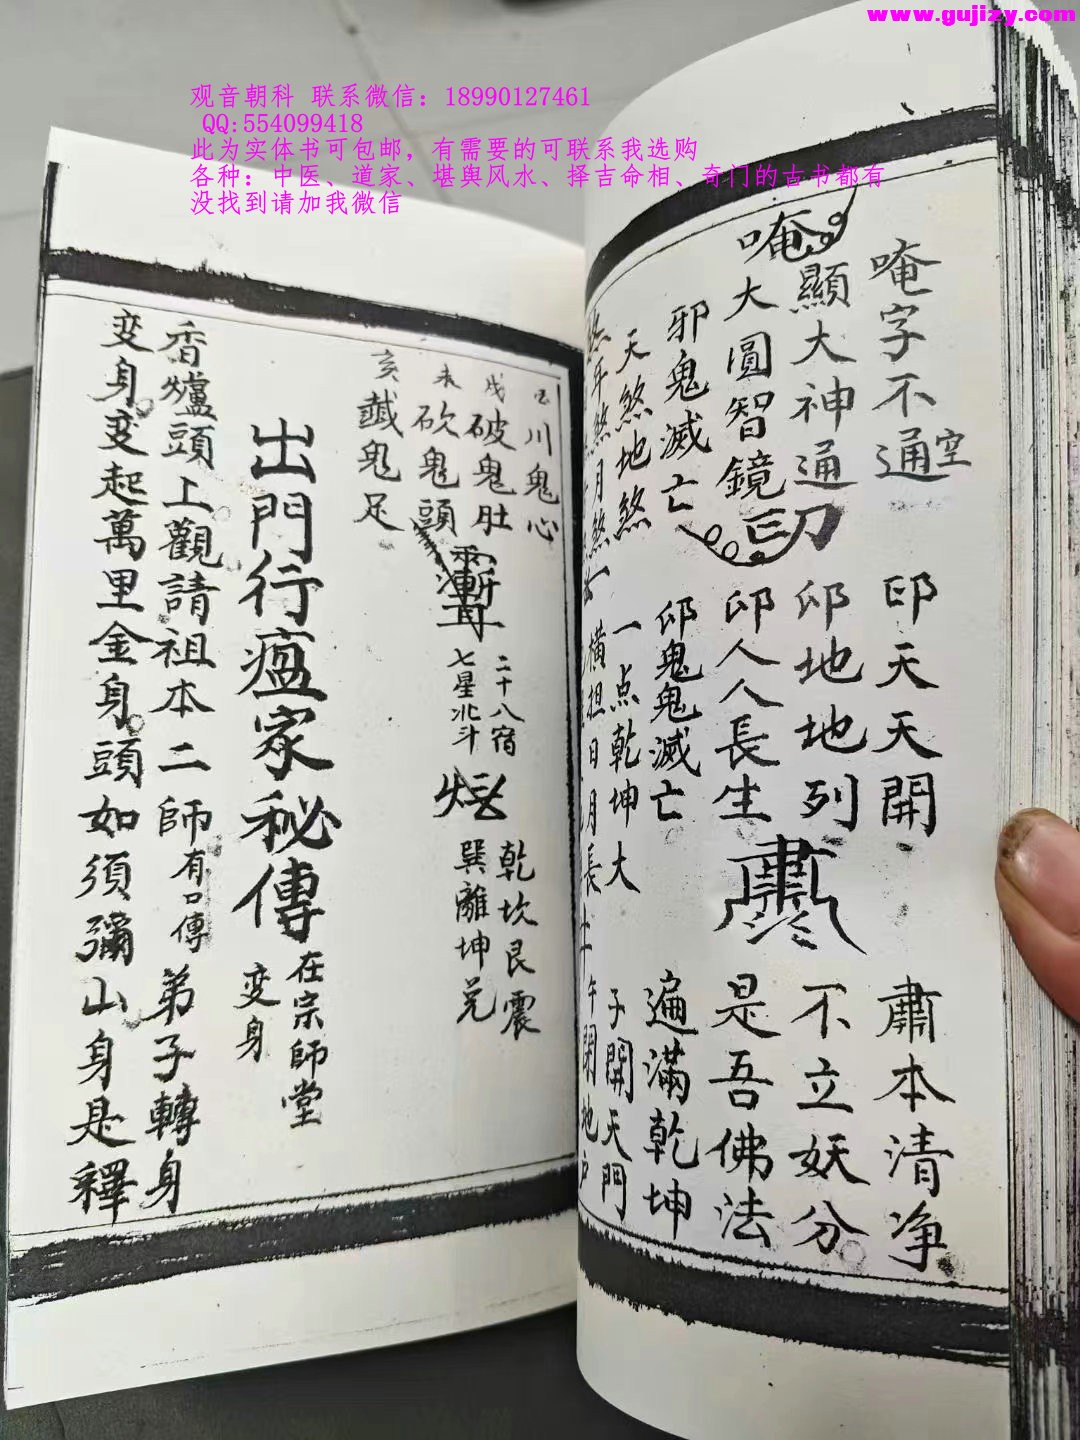 www.gujizy.com
观音朝科 联系微信：18990127461
QQ:554099418
此为实体书可包邮，有需要的可联系我选购
各种：中医、道家、堪舆风水、择吉命相、奇门的古书都有
没找到请加我微信
唵字不通空
印天天開
肅本清净
顯大神通
印地地列
不立妖分
唵
大圓智鏡
印
印人人長生
肅
是吾佛法
邪鬼滅亡
印鬼鬼滅亡
遍滿乾坤
天煞地煞
一点乾坤大
子開天門
年煞月煞
横担日月長
午閉地户
川鬼心
戌
破鬼肚
未
砍鬼頭
亥
鬼足
二十八宿
七星北斗
乾坎艮震
巽離坤兑
出門行瘟家秘傳
在宗師堂
变身
香爐頭上觀請祖本二師有口傳
弟子轉身
变身变起萬里金身頭如須彌山身是釋